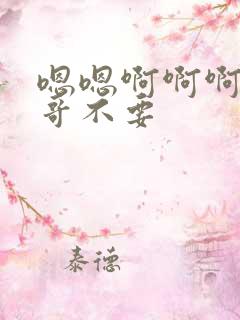 嗯嗯啊啊啊
哥不要
泰德